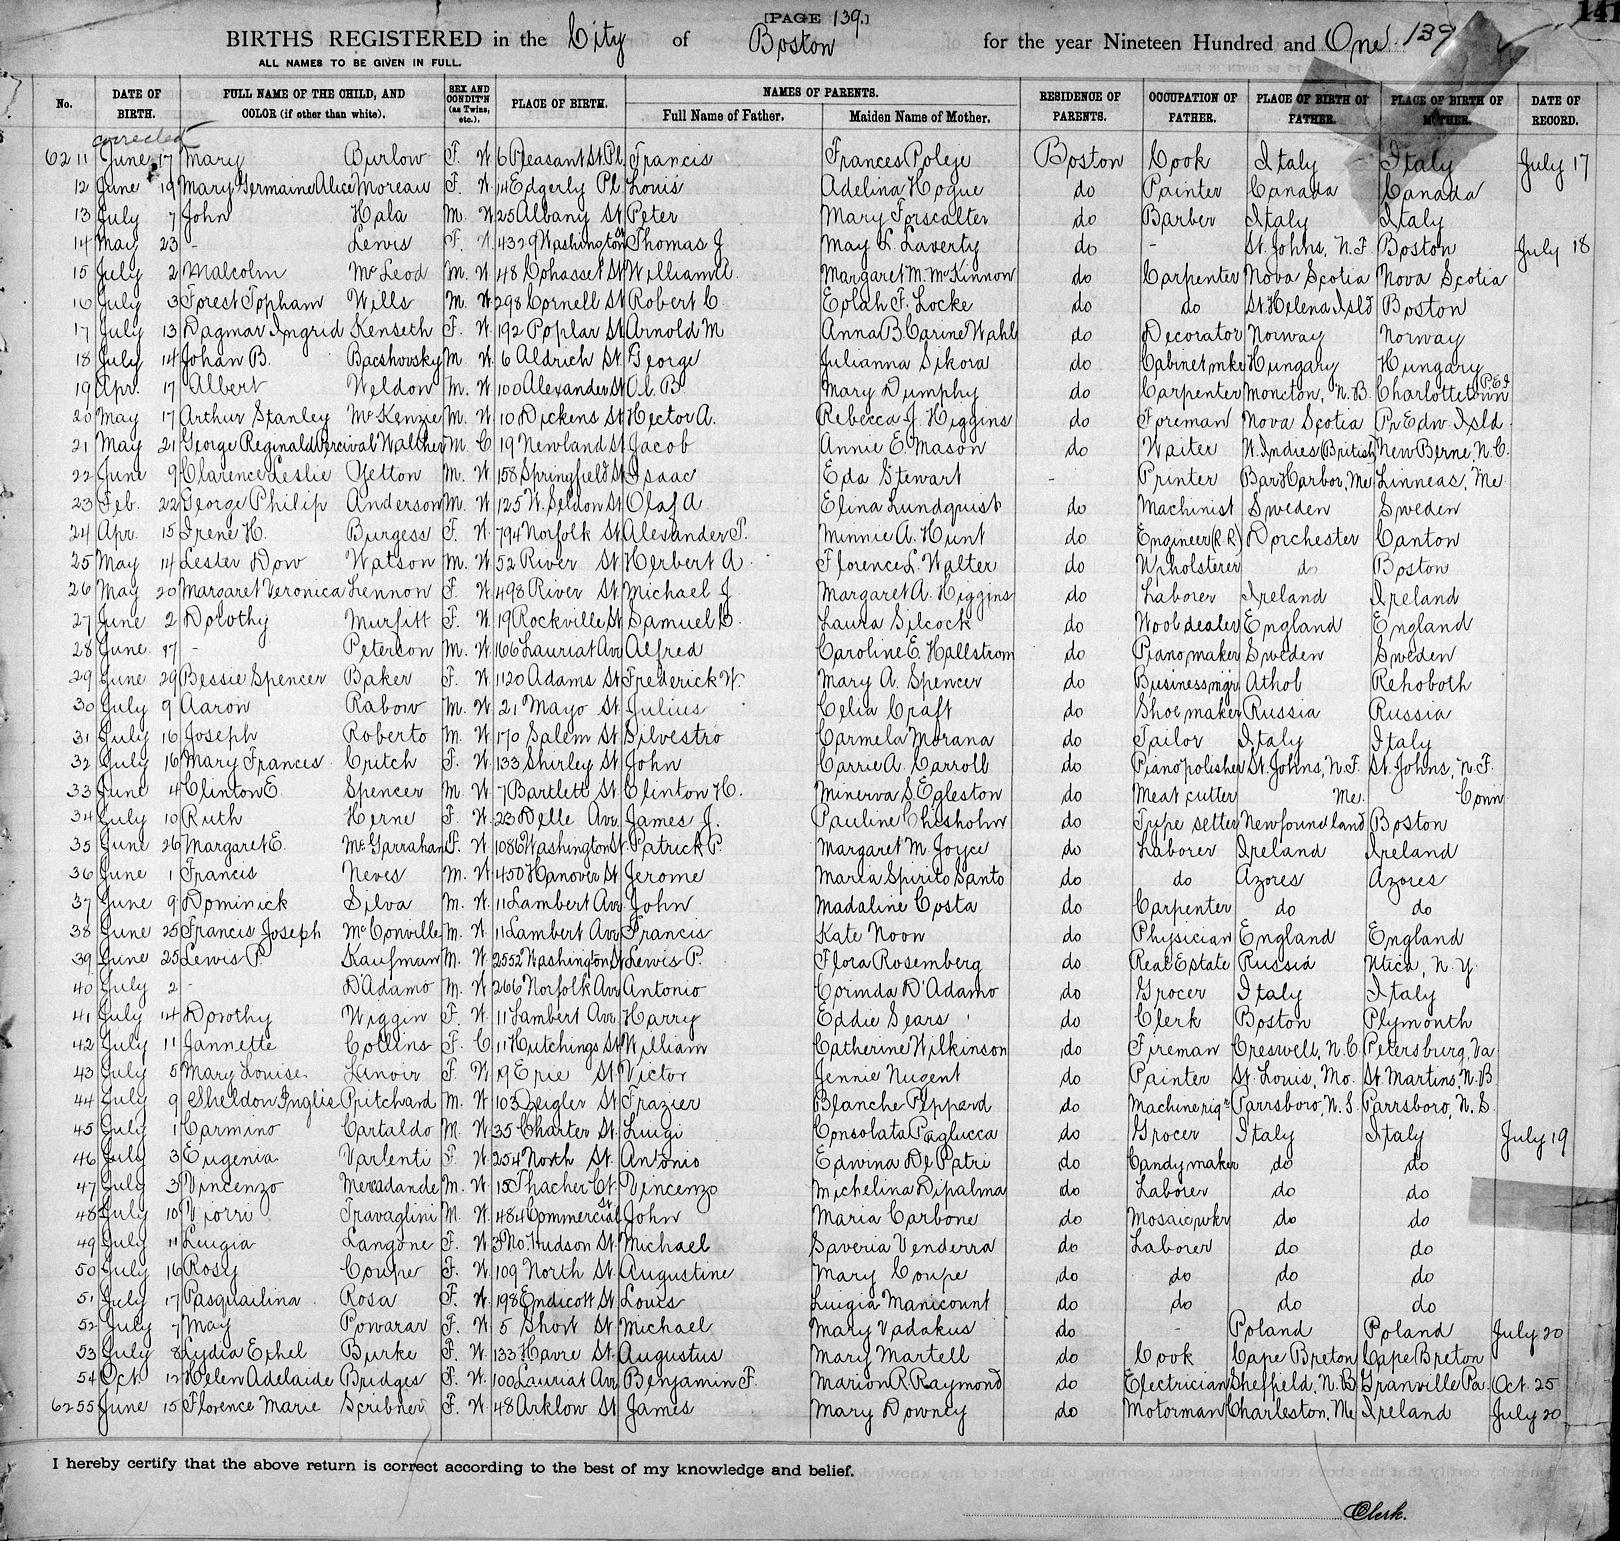 [PAGE 139.]
141
BIRTHS REGISTERED in the City of Boston for the year Nineteen Hundred and One 139
ALL NAMES TO BE GIVEN IN FULL.
No. DATE OF BIRTH. FULL NAME OF THE CHILD, AND COLOR (if other than white). SEX AND CONDIT'N (as Twins, etc.). PLACE OF BIRTH. NAMES OF PARENTS. Full Name of Father. Maiden Name of Mother. RESIDENCE OF PARENTS. OCCUPATION OF FATHER. PLACE OF BIRTH OF FATHER. PLACE OF BIRTH OF MOTHER. DATE OF RECORD.
corrected
6211 June 17 Mary Burlow F. W. 6 Pleasant St. Pl. Francis Frances Poleje Boston Cook Italy Italy July 17
12 June 19 Mary Germaine Alice Moreau F. W. 14 Edgerly Pl Louis Adelina Hogue do Painter Canada Canada
13 July 7 John Hala M. W. 25 Albany St Peter Mary Forscalter do Barber Italy Italy
14 May 23 - Lewis F. W. 4329 Washington St Thomas J May L. Laverty do - St. Johns, N.F Boston July 18
15 July 2 Malcolm McLeod M. W. 48 Cohasset St William A. Margaret M. McKinnon do Carpenter Nova Scotia Nova Scotia
16 July 3 Forest Topham Wills M. W. 298 Cornell St Robert C. Eolah F. Locke do do St. Helena Isld Boston
17 July 13 Dagmar Ingrid Kenseth F. W. 192 Poplar St Arnold M Anna B. Carine Wahl do Decorator Norway Norway
18 July 14 Johan B. Bacshovsky M. W. 6 Aldrich St George Julianna Sikora do Cabinet mker Hungary Hungary
19 Apr. 17 Albert Weldon M. W. 100 Alexander St Al. B. Mary Dumphy do Carpenter Moncton, N.B. Charlottetown P.E.I
20 May 17 Arthur Stanley McKenzie M. W. 10 Dickens St Hector A. Rebecca J. Higgins do Foreman Nova Scotia Pr. Edw. Isld.
21 May 21 George Reginald Percival Walther M. C. 19 Newland St Jacob Annie E. Mason do Waiter W. Indies (British) New Berne, N.C.
22 June 9 Clarence Leslie Yetton M. W. 158 Springfield St Isaac Eda Stewart - Printer Bar Harbor, Me. Linneas, Me
23 Feb. 22 George Philip Anderson M. W. 125 W. Seldon St Olaf A Elina Lundquist do Machinist Sweden Sweden
24 Apr. 15 Irene H. Burgess F. W. 794 Norfolk St Alexander P. Minnie A. Hunt do Engineer (R.R.) Dorchester Canton
25 May 14 Lester Dow Watson M. W. 52 River St Herbert A. Florence L. Walter do Upholsterer do Boston
26 May 20 Margaret Veronica Lennon F. W. 498 River St Michael J Margaret A. Higgins do Laborer Ireland Ireland
27 June 2 Dolothy Murfitt F. W. 19 Rockville St Samuel Laura Silcock do Wool dealer England England
28 June 17 - Peterson M. W. 166 Lauriat Ave Alfred Caroline E. Hallstrom do Piano maker Sweden Sweden
29 June 29 Bessie Spencer Baker F. W. 1120 Adams St Frederick W. Mary A. Spencer do Business mgr Athol Rehoboth
30 July 9 Aaron Rabow M. W. 21 Mayo St Julius Celia Craft do Shoe maker Russia Russia
31 July 16 Joseph Roberto M. W. 170 Salem St Silvestro Carmela Morana do Tailor Italy Italy
32 July 16 Mary Frances Critch F. W. 133 Shirley St John Carrie A. Carroll do Piano polisher St. Johns, N.F. St. Johns, N.F.
33 June 4 Clinton E. Spencer M. W. 7 Bartlett St Clinton H. Minerva S. Egleston do Meat cutter Me. Conn
34 July 10 Ruth Herne F. W. 23 Delle Ave James J. Pauline Chisholm do Type setter Newfoundland Boston
35 June 26 Margaret E. McGarrahan F. W. 1086 Washington St Patrick P. Margaret M. Joyce do Laborer Ireland Ireland
36 June 1 Francis Neves M. W. 450 Hanover St Jerome Maria Spirito Santo do do Azores Azores
37 June 9 Dominick Silva M. W. 11 Lambert Ave John Madaline Costa do Carpenter do do
38 June 25 Francis Joseph McConville M. W. 11 Lambert Ave Francis Kate Noon do Physician England England
39 June 25 Lewis P. Kaufman M. W. 2552 Washington St Lewis P. Flora Rosemberg do Real Estate Russia Utica, N.Y.
40 July 2 - D'Adamo M. W. 266 Norfolk Ave Antonio Corinda D'Adamo do Grocer Italy Italy
41 July 14 Dorothy Wiggin F. W. 11 Lambert Ave Harry Eddie Sears do Clerk Boston Plymouth
42 July 11 Jannette Collins F. C. 11 Hutchings St William Catherine Wilkinson do Fireman Creswell, N.C. Petersburg, Va
43 July 5 Mary Louise Lanoir F. W. 19 Erie St Victor Jennie Nugent do Painter St. Louis, Mo. St. Martins, N.B.
44 July 9 Sheldon Inglis Pritchard M. W. 103 Zeigler St Frazier Blanche Peppard do Machine rigr Parrsboro, N.S. Parrsboro, N.S.
45 July 1 Carmino Cataldo M. W. 35 Charter St Luigi Consolata Paglucca do Grocer Italy Italy July 19
46 July 3 Eugenia Varlenti F. W. 254 North St. Antonio Edwina De Patri do Candy maker do do
47 July 3 Vincenzo Mercadande M. W. 15 Thacher Ct. Vincenzo Michelina Dipalma do Laborer do do
48 July 10 Travaglini M. W. 484 Commercial St John Maria Carbone do Mosaic wkr do do
49 July 11 Luigia Langone F. W. 3 No. Hudson St Michael Saveria Venderra do Laborer do do
50 July 16 Rosy Coupe F. W. 109 North St. Augustine Mary Coupe do do do do
51 July 17 Pasquailina Rosa F. W. 198 Endicott St Louis Luigia Manicount do do do do
52 July 7 May Powarar F. W. 5 Short St Michael Mary Vadakus do - Poland Poland July 20
53 July 8 Lydia Ethel Burke F. W. 133 Havre St Augustus Mary Martell do Cook Cape Breton Cape Breton
54 Oct. 12 Helen Adelaide Bridges F. W. 100 Lauriat Ave Benjamin F. Marion R. Raymond do Electrician Sheffield, N.B. Granville Pa. Oct. 25
6255 June 15 Florence Marie Scribner F. W. 48 Arklow St James Mary Downey do Motorman Charleston, Me Ireland July 20
I hereby certify that the above return is correct according to the best of my knowledge and belief.
Clerk.